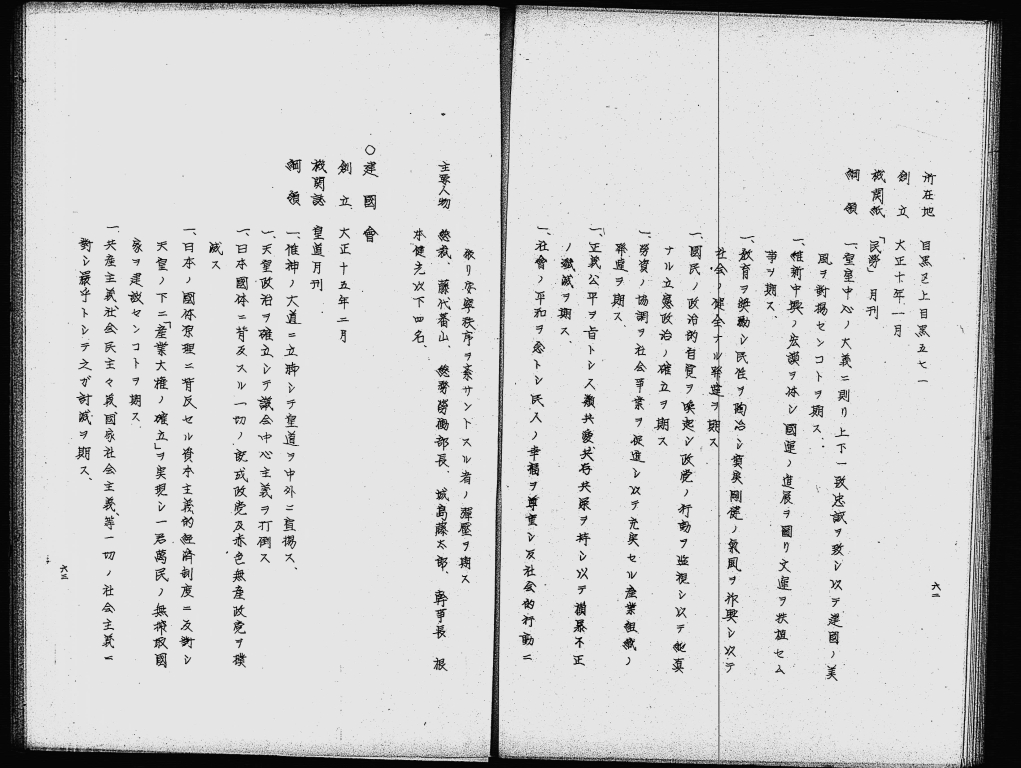 所在地 目黒区上目黒五七一
創立 大正十年一月
機関紙 「民労」月刊
綱領 一、皇室中心ノ大義ニ則リ上下一致忠誠ヲ致シ以テ建國ノ美
風ヲ対揚センコトヲ期ス、
一、維新中興ノ宏謨ヲ体シ國運ノ進展ヲ圖リ文運ヲ扶植セム
事ヲ期ス、
一、教育ヲ奨励シ民性ヲ陶冶シ質実剛健ノ氣風ヲ作興シ以テ
社会ノ健全ナル発達ヲ期ス
一、國民ノ政治的自覚ヲ喚起シ政党ノ行動ヲ監視シ以テ純真
ナル立憲政治ノ確立ヲ期ス
一、労資ノ協調ヲ社会事業ヲ促進シ以テ充実セル産業組織ノ
発達ヲ期ス
一、正義公平ヲ旨トシ人類共愛共存共栄ヲ持シ以テ横暴不正
ノ殲滅ヲ期ス、
一、社會ノ平和ヲ念トシ民人ノ幸福ヲ尊重シ反社会的行動ニ
六二
依リ安寧秩序ヲ紊サントスル者ノ彈壓ヲ期ス
主要人物 総裁、藤代番山、総務労働部長、城島藤太郎、幹事長 根
本健光以下四名、
○建國會
創立 大正十五年二月
機関誌 皇道月刊
綱領 一、惟神ノ大道ニ立脚シテ皇道ヲ中外ニ宣揚ス、
一、天皇政治ヲ確立シテ議会中心主義ヲ打倒ス
一、日本國体ニ背反スル一切ノ既成政党及赤色無産政党ヲ撲
滅ス
一、日本ノ國体原理ニ背反セル資本主義的経済制度ニ反対シ
天皇ノ下ニ「産業大権ノ確立」ヲ実現シ一君萬民ノ無搾取國
家ヲ建設センコトヲ期ス
一、共産主義社会民主々義國家社会主義、等一切ノ社会主義ニ
対シ嚴乎トシテ之ガ討滅ヲ期ス、
六三